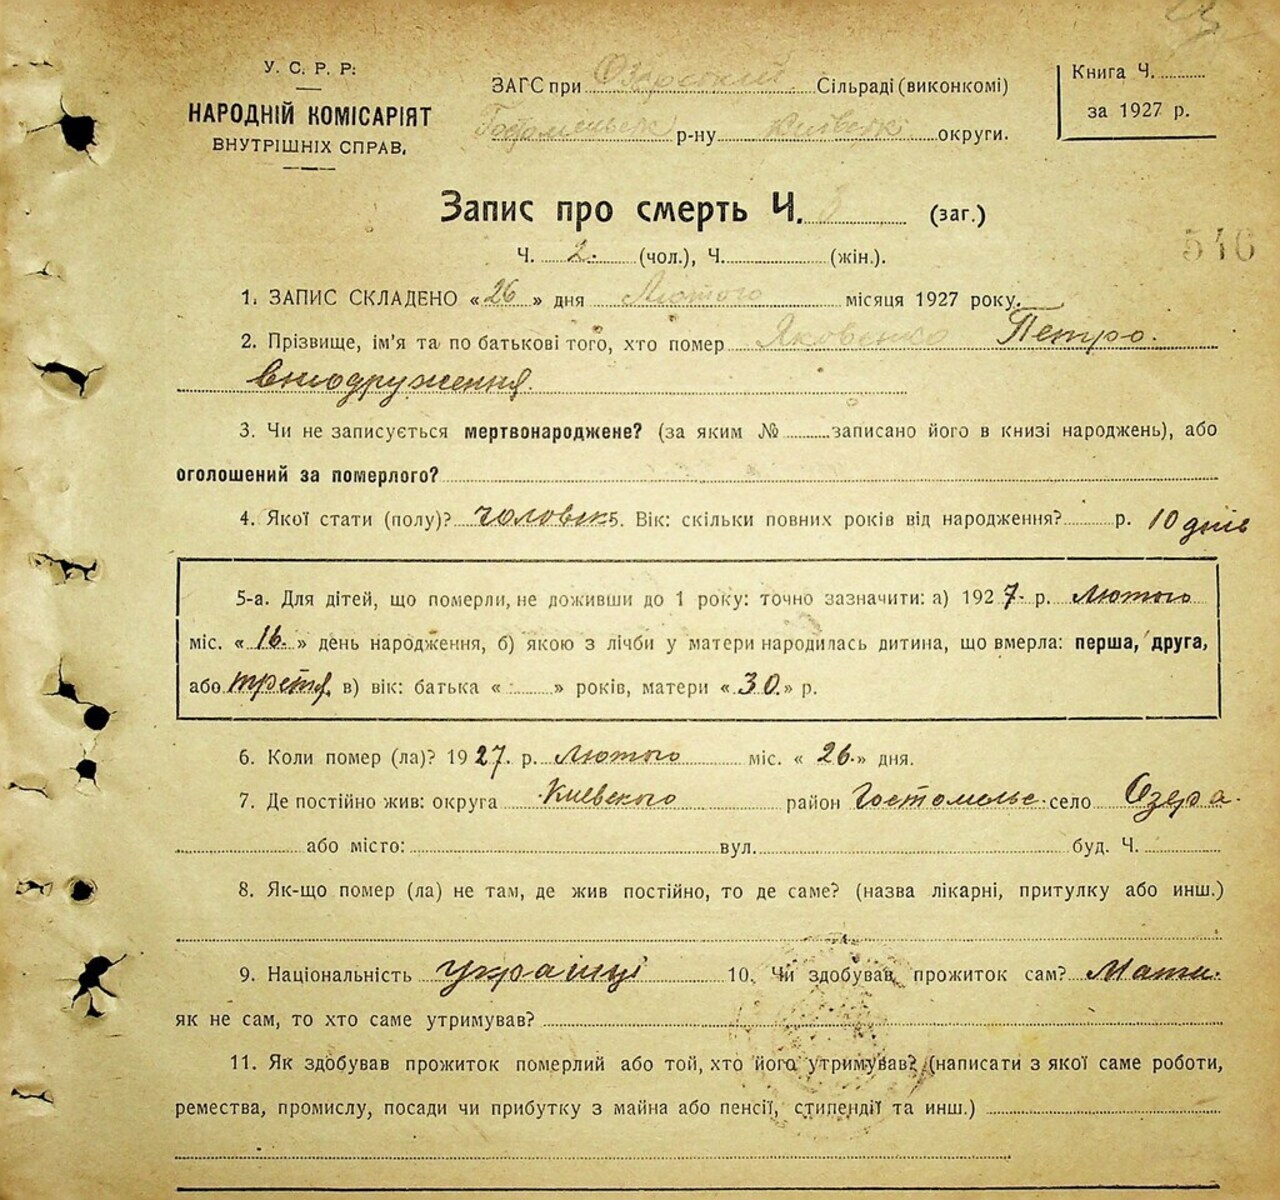 У. С. Р. Р.
НАРОДНІЙ КОМІСАРІЯТ
ВНУТРІШНІХ СПРАВ.
ЗАГС при Озерский Сільраді (виконкомі)
Гостомельск р-ну Київськ округи.
Книга Ч.
за 1927 р.
Запис про смерть Ч. 3 (заг.)
546
Ч. 2. (чол.), Ч. (жін.).
1. ЗАПИС СКЛАДЕНО «26» дня Лютого місяця 1927 року.
2. Прізвище, ім'я та по батькові того, хто помер Яковенко Петро.
3. Чи не записується мертвонароджене? (за яким № записано його в книзі народжень), або
оголошений за померлого?
4. Якої стати (полу)? чоловік 5. Вік: скільки повних років від народження? р. 10 днів
5-а. Для дітей, що померли, не доживши до 1 року: точно зазначити: а) 1927 р. лютого
міс. «16.» день народження, б) якою з лічби у матери народилась дитина, що вмерла: перша, друга,
або третя, в) вік: батька « » років, матери «30.» р.
6. Коли помер (ла)? 1927. р. лютого міс. «26.» дня.
7. Де постійно жив: округа Киевского район Гостомельс. село Озера.
або місто: вул. буд. Ч.
8. Як-що помер (ла) не там, де жив постійно, то де саме? (назва лікарні, притулку або инш.)
9. Національність українці 10. Чи здобував прожиток сам? Мати.
як не сам, то хто саме утримував?
11. Як здобував прожиток померлий або той, хто його утримував? (написати з якої саме роботи,
ремества, промислу, посади чи прибутку з майна або пенсії, стипендії та инш.)